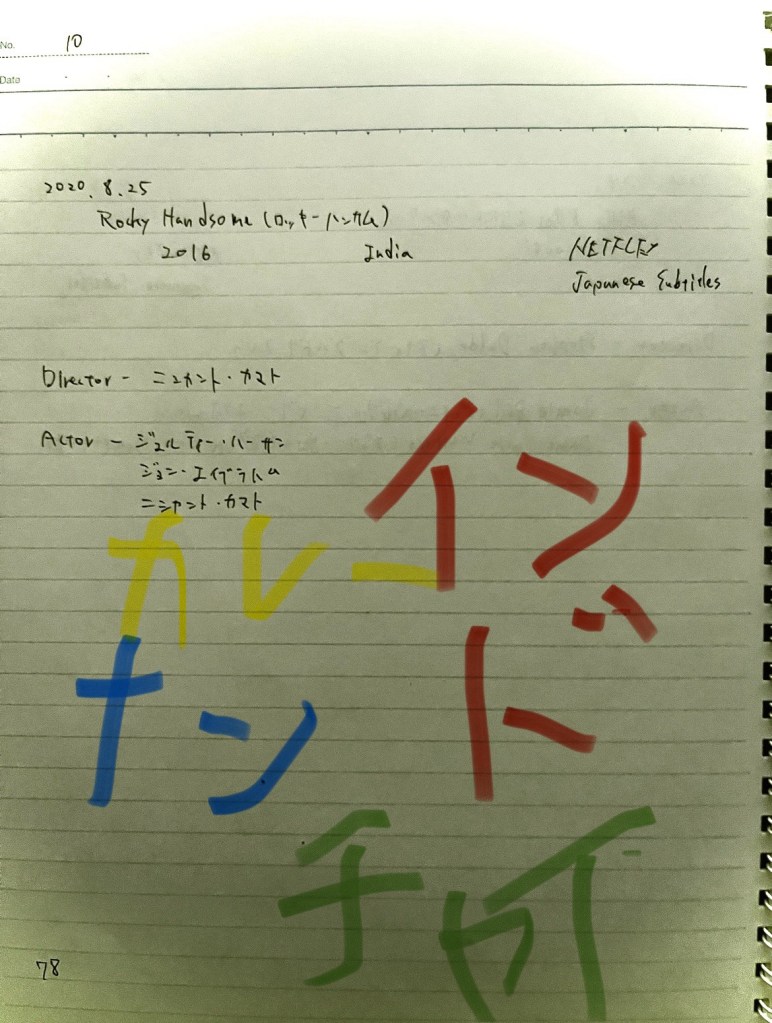 No. 10
Date
2020.8.25
Rocky Handsome (ロッキー・ハンサム)
2016 India NETFLIX
Japanese Subtitles
Director - ニシカント・カマト
Actor - シュルティー・ハーサン
ジョン・エイブラハム
ニシャント・カマト
インド
カレー
ナン
チャイ
78